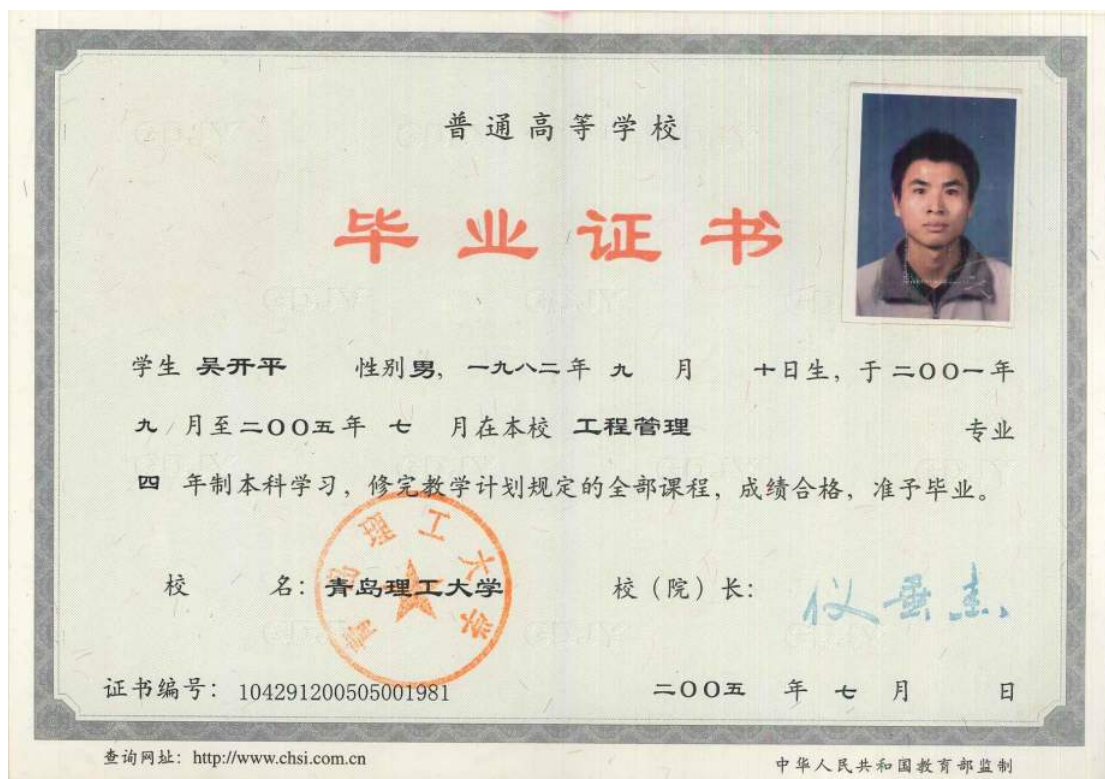 普通高等学校
毕业证书
学生 吴开平 性别男，一九八二年 九 月 十日生，于二〇〇一年
九 月至二〇〇五年 七 月在本校 工程管理 专业
四 年制本科学习，修完教学计划规定的全部课程，成绩合格，准予毕业。
校 名：青岛理工大学 校（院）长：仪垂杰
青岛理工大学
证书编号：104291200505001981 二〇〇五 年 七 月 日
查询网址：http://www.chsi.com.cn 中华人民共和国教育部监制